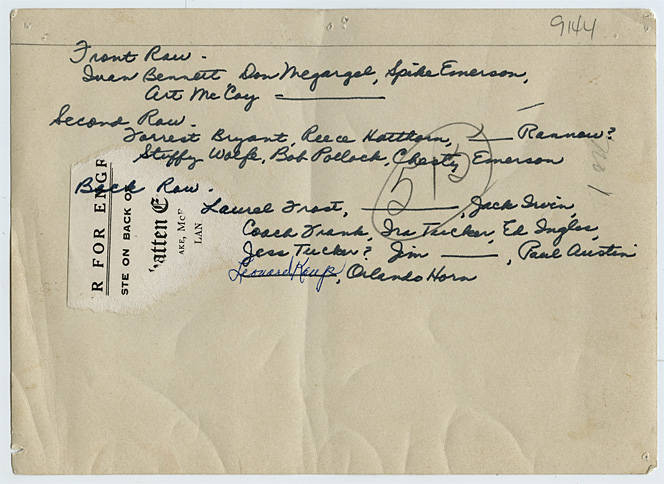 9144
Front Row.
Ivan Bennett Don Megargel, Spike Emerson,
Art McCoy ————
Second Row.
Forrest Bryant, Reece Hatthorn, —— Rannow?
Stuffy Wolfe, Bob Pollock, Chesty Emerson
515
Back Row.
Laurel Frost, ————, Jack Irvin,
Coach Frank, Ira Tucker, Ed Ingles,
Jess Tucker? Jim ———, Paul Austin
Leonard Kauf, Orlando Horn
R FOR ENGR
STE ON BACK O
atten E
AKE, McP
LAN